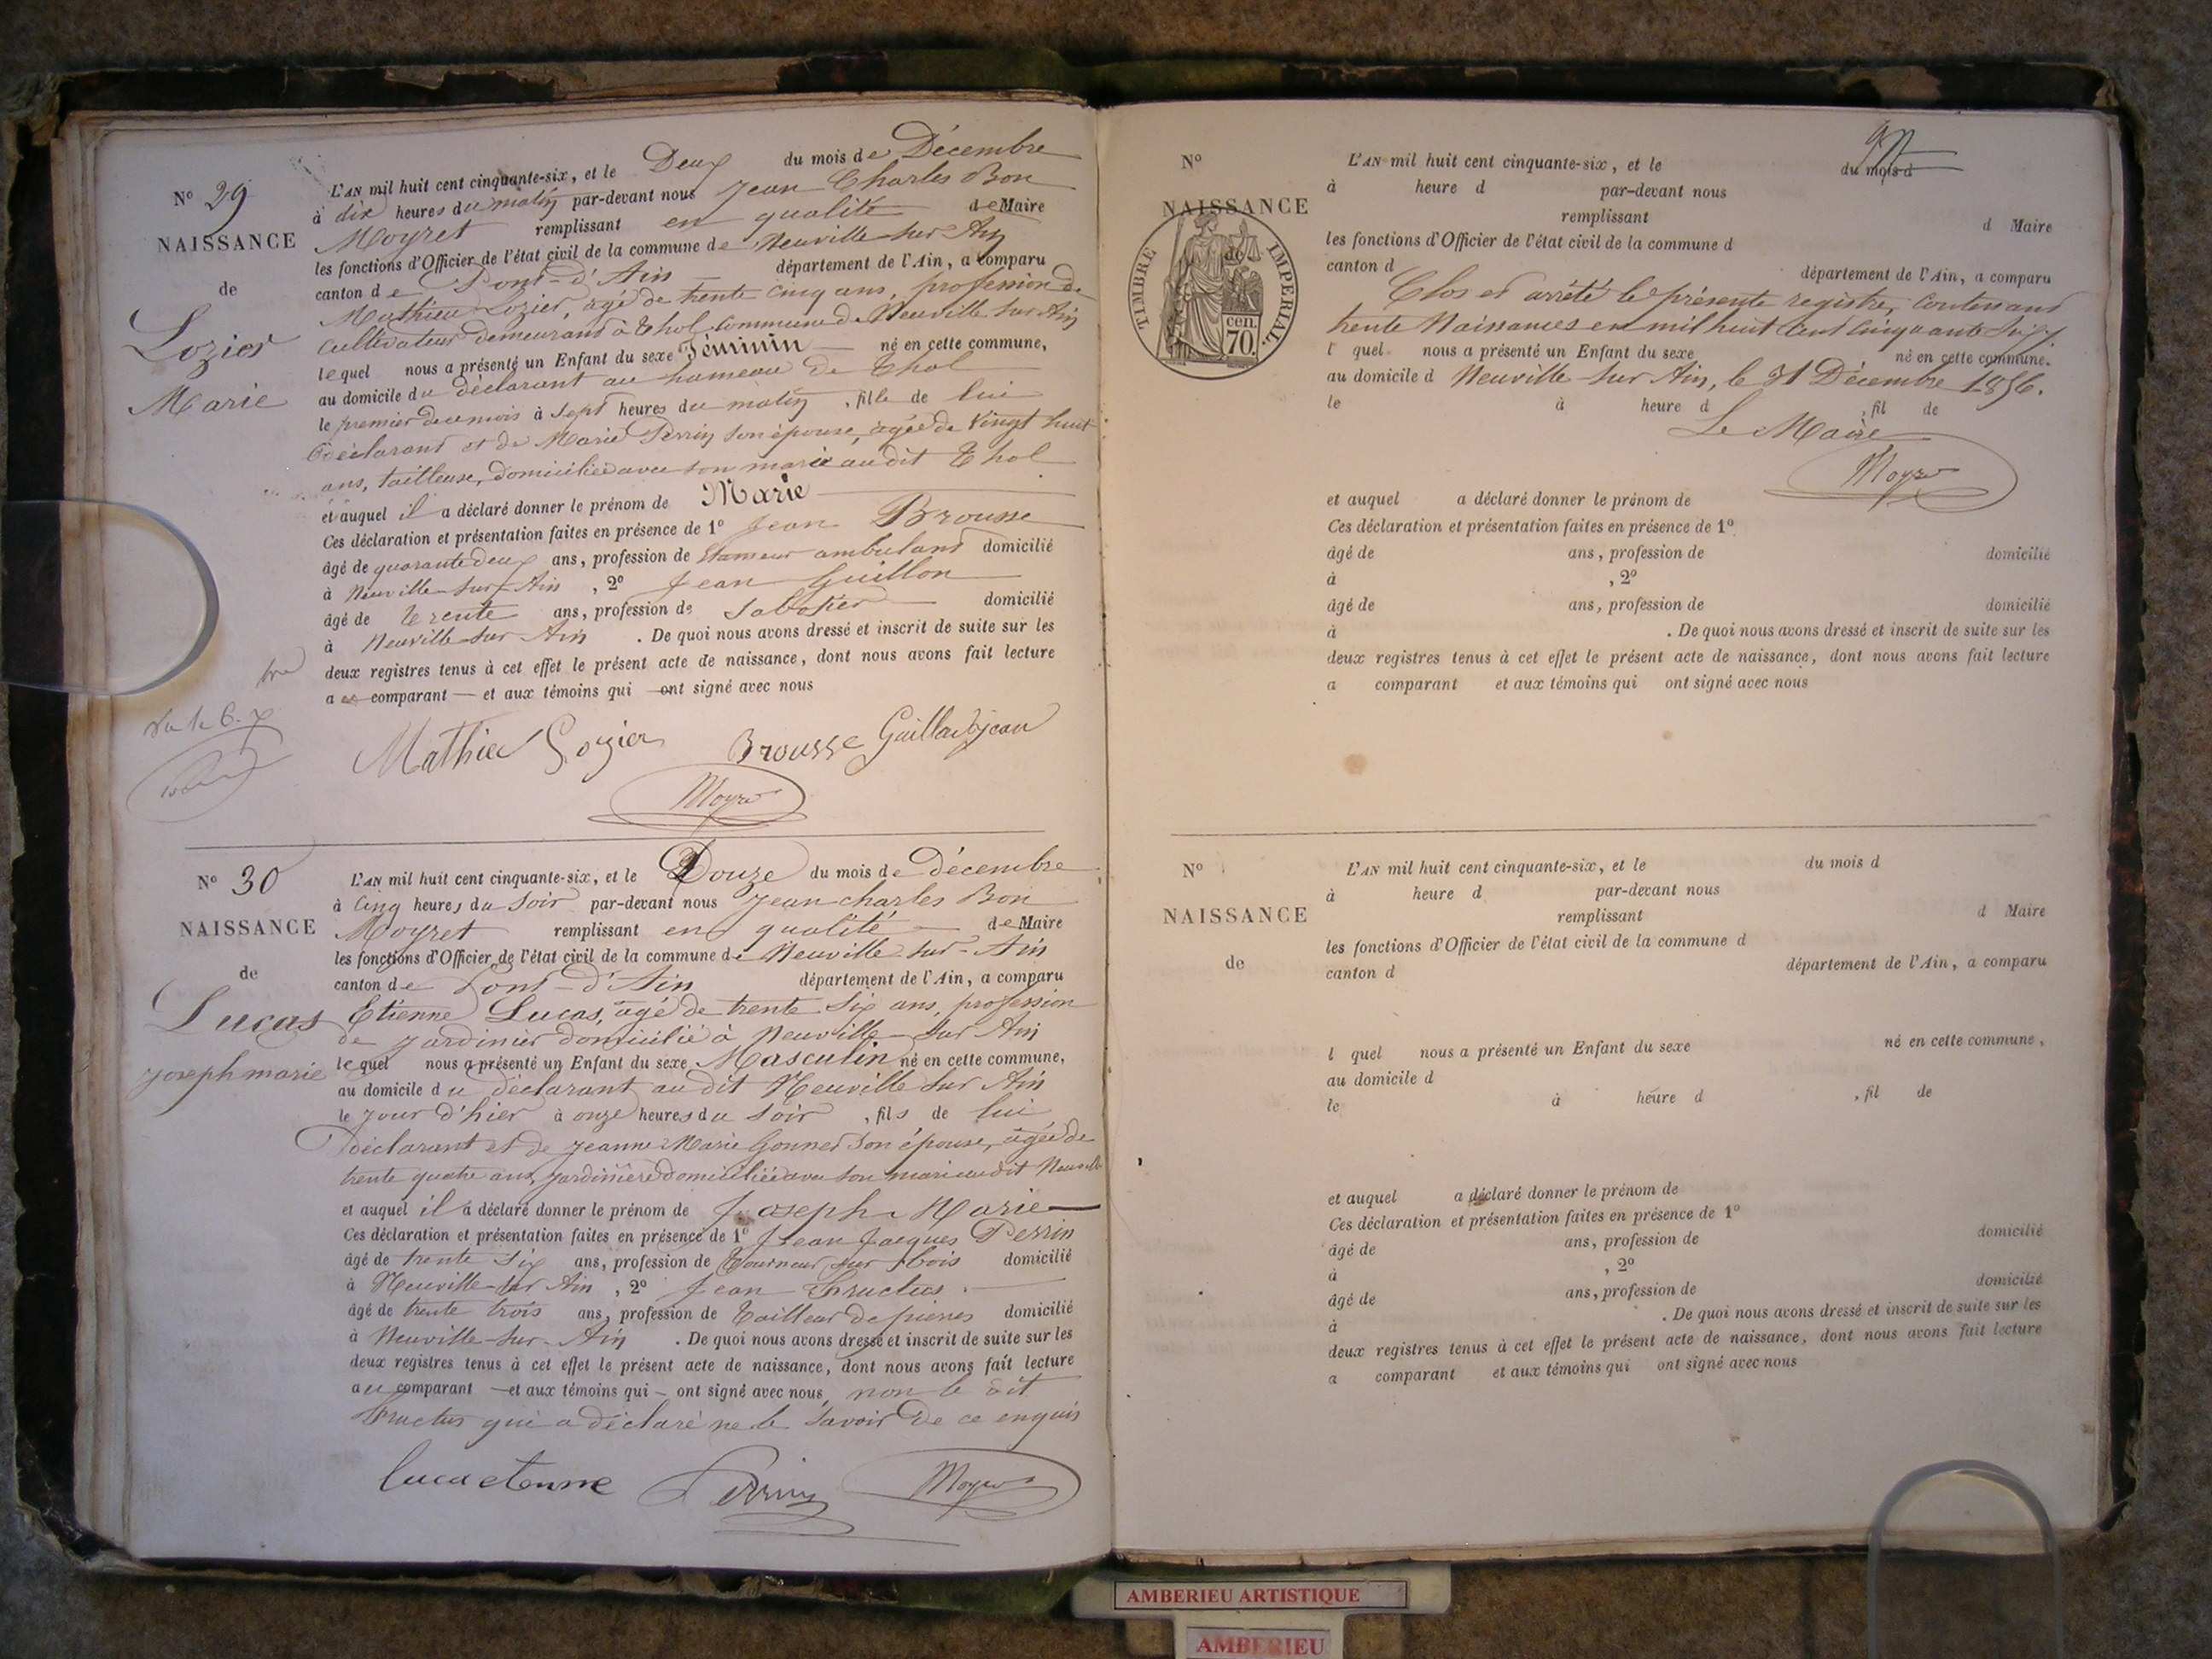 N° 29
NAISSANCE
de
Lozier
Marie
L'AN mil huit cent cinquante-six, et le Deux du mois de Décembre
à dix heures du matin par-devant nous Jean Charles Bon
Moyret remplissant en qualité de Maire
les fonctions d'Officier de l'état civil de la commune de Neuville sur Ain
canton de Pont-d'Ain département de l'Ain, a comparu
Mathieu Lozier, agé de trente cinq ans, profession de
cultivateur demeurant à Thol commune de Neuville sur Ain
lequel nous a présenté un Enfant du sexe Féminin né en cette commune,
au domicile du déclarant au hameau de Thol
le premier du mois à sept heures du matin, fille de lui
déclarant et de Marie Perrin son épouse, agée de vingt huit
ans, tailleuse, domiciliée avec son marie audit Thol
et auquel il a déclaré donner le prénom de Marie
Ces déclaration et présentation faites en présence de 1° Jean Brousse
âgé de quarante deux ans, profession de Etameur ambulant domicilié
à Neuville-sur-Ain, 2° Jean Guillon
âgé de trente ans, profession de Sabotier domicilié
à Neuville-sur Ain. De quoi nous avons dressé et inscrit de suite sur les
deux registres tenus à cet effet le présent acte de naissance, dont nous avons fait lecture
au comparant — et aux témoins qui ont signé avec nous
Mathieu Lozier Brousse jean
Moyret
N° 30
NAISSANCE
de
Lucas
Joseph marie
L'AN mil huit cent cinquante-six, et le Douze du mois de Décembre
à Cinq heures du Soir par-devant nous Jean charles Bon
Moyret remplissant en qualité de Maire
les fonctions d'Officier de l'état civil de la commune de Neuville sur-Ain
canton de Pont-d'Ain département de l'Ain, a comparu
Etienne Lucas, agé de trente Six ans, profession
de Jardinier domicilié à Neuville-sur Ain
lequel nous a présenté un Enfant du sexe Masculin né en cette commune,
au domicile du déclarant au dit Neuville sur Ain
le jour d'hier à onze heures du Soir, fils de lui
déclarant et de Jeanne Marie Gonned son épouse, agée de
trente quatre ans, jardinière domiciliée avec son mari audit Neuville
et auquel il a déclaré donner le prénom de Joseph Marie
Ces déclaration et présentation faites en présence de 1° Jean Jacques Perrin
âgé de trente six ans, profession de Tourneur sur bois domicilié
à Neuville-sur Ain, 2° Jean Fructus
âgé de trente trois ans, profession de Tailleur de pierres domicilié
à Neuville-sur-Ain. De quoi nous avons dressé et inscrit de suite sur les
deux registres tenus à cet effet le présent acte de naissance, dont nous avons fait lecture
au comparant — et aux témoins qui — ont signé avec nous, non le dit
Fructus qui a déclaré ne le savoir de ce enquis
luca etenne Perrin Moyret
N°
NAISSANCE
TIMBRE IMPERIAL
de
70 cen.
L'AN mil huit cent cinquante-six, et le du mois d
à heure d par-devant nous
remplissant d Maire
les fonctions d'Officier de l'état civil de la commune d
canton d département de l'Ain, a comparu
Clos et arrêté le présente registre, contenant
trente Naissances en mil huit Cent Cinquante Six
l quel nous a présenté un Enfant du sexe né en cette commune.
au domicile d Neuville-sur Ain, le 31 Décembre 1856.
le à heure d, fil de
Le Maire
Moyret
et auquel a déclaré donner le prénom de
Ces déclaration et présentation faites en présence de 1°
âgé de ans, profession de domicilié
à , 2°
âgé de ans, profession de domicilié
à . De quoi nous avons dressé et inscrit de suite sur les
deux registres tenus à cet effet le présent acte de naissance, dont nous avons fait lecture
a comparant et aux témoins qui ont signé avec nous
N°
NAISSANCE
de
L'AN mil huit cent cinquante-six, et le du mois d
à heure d par-devant nous
remplissant d Maire
les fonctions d'Officier de l'état civil de la commune d
canton d département de l'Ain, a comparu
l quel nous a présenté un Enfant du sexe né en cette commune,
au domicile d
le à heure d , fil de
et auquel a déclaré donner le prénom de
Ces déclaration et présentation faites en présence de 1°
âgé de ans, profession de domicilié
à , 2°
âgé de ans, profession de domicilié
à . De quoi nous avons dressé et inscrit de suite sur les
deux registres tenus à cet effet le présent acte de naissance, dont nous avons fait lecture
a comparant et aux témoins qui ont signé avec nous
AMBERIEU ARTISTIQUE
AMBERIEU